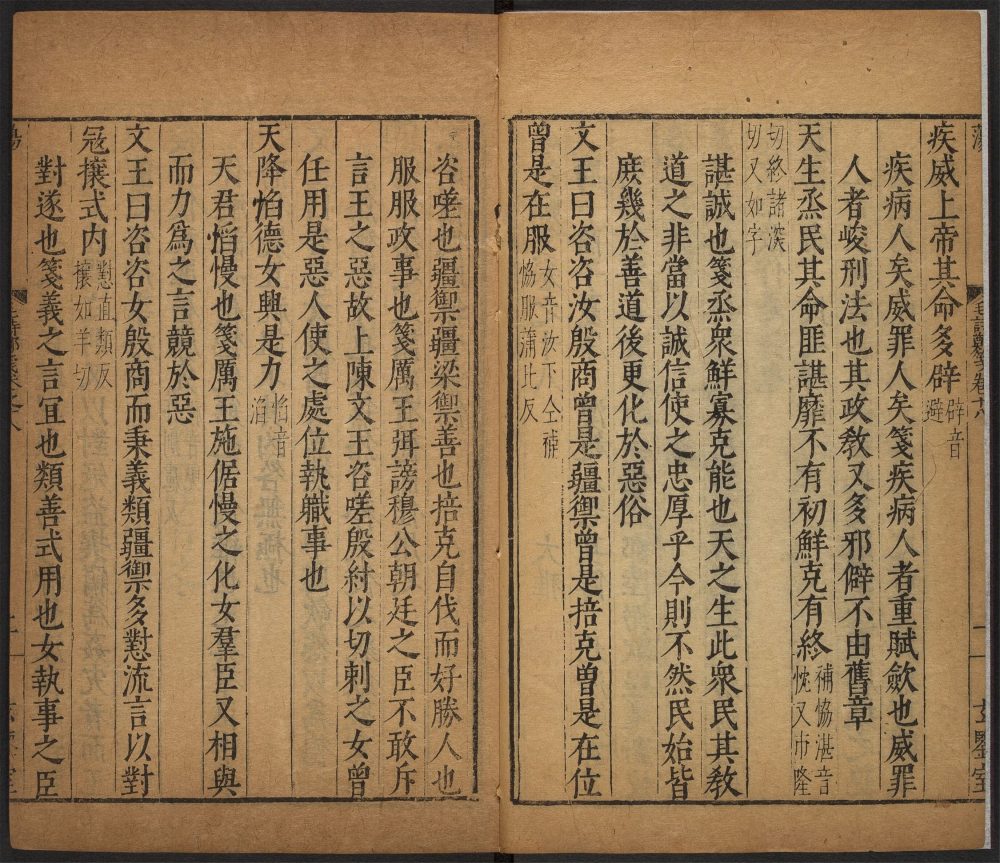 疾威上帝其命多辟辟音避
疾病人矣威罪人矣箋疾病人者重賦歛也威罪
人者峻刑法也其政敎又多邪僻不由舊章
天生烝民其命匪諶靡不有初鮮克有終補協湛音忱又市隆
切終諸深切又如字
諶誠也箋烝衆鮮寡克能也天之生此衆民其敎
道之非當以誠信使之忠厚乎今則不然民始皆
庶幾於善道後更化於惡俗
文王曰咨咨汝殷商曾是彊禦曾是掊克曾是在位
曾是在服女音汝下仝補協服蒲比反
咨嗟也彊禦彊梁禦善也掊克自伐而好勝人也
服服政事也箋厲王弭謗穆公朝廷之臣不敢斥
言王之惡故上陳文王咨嗟殷紂以切刺之女曾
任用是惡人使之處位執職事也
天降慆德女興是力慆音滔
天君慆慢也箋厲王施倨慢之化女羣臣又相與
而力爲之言競於惡
文王曰咨咨女殷商而秉義類彊禦多懟流言以對
寇攘式內懟直類反攘如羊切
對遂也箋義之言宜也類善式用也女執事之臣